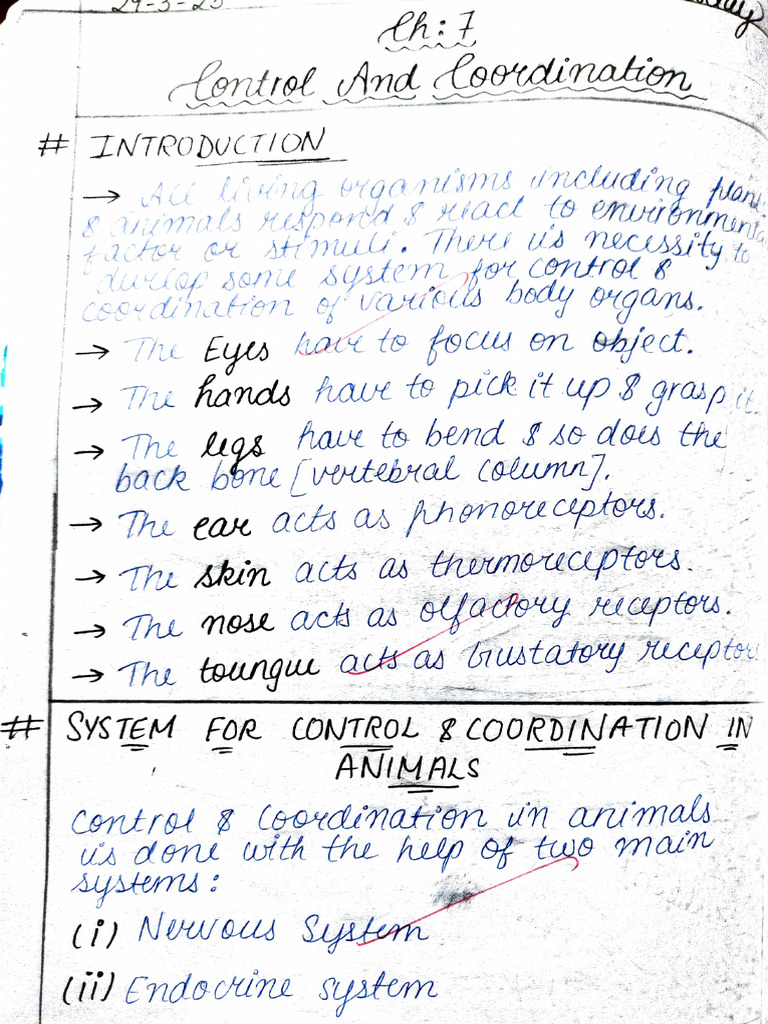 29-3-25
Ch: 7
Control And Coordination
# INTRODUCTION
→ All living organisms including plants
& animals respond & react to environmental
factor or stimuli. There is necessity to
devlop some system for control &
coordination of various body organs.
→ The Eyes have to focus on object.
→ The hands have to pick it up & grasp it.
→ The legs have to bend & so does the
back bone [vertebral column].
→ The ear acts as phonoreceptors.
→ The skin acts as thermoreceptors.
→ The nose acts as olfactory receptors.
→ The toungue acts as Gustatory receptor
# SYSTEM FOR CONTROL & COORDINATION IN
ANIMALS
Control & Coordination in animals
is done with the help of two main
systems:
(i) Nervous System
(ii) Endocrine system